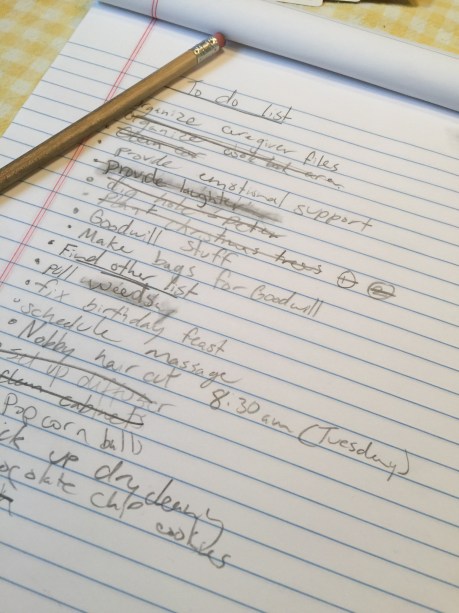 To do list
organize caregiver files
organize workout area
clean car
• Provide emotional support
• Provide laughter
• dig hole
• Plant christmas trees
• Goodwill stuff
• Make bags for Goodwill
• Find other list
• pull weeds
• fix birthday feast
• schedule massage
• Nobby hair cut 8:30 am (Tuesday)
set up diffuser
clean cabinets
Popcorn balls
pick up drycleaning
chocolate chip cookies